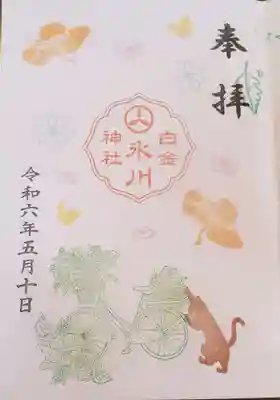 奉拝
白金
氷川
神社
令和六年五月十日